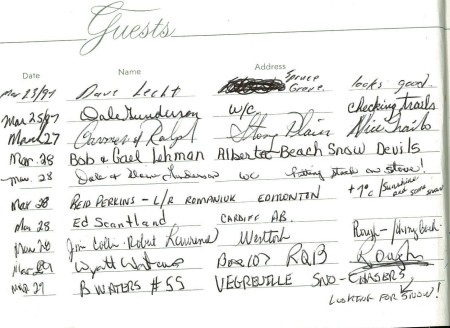 Guests
Date Name Address
Mar 25/97 Dave Lecht Spruce Grove. looks good.
Mar 25/97 Dale Gunderson W/C, Checking trails
March 27 & Ralph Stony Plain Nice Trails
Mar. 28 Bob & Gael Lehman Alberta Beach Snow Devils
Mar. 28 Dale & Gunderson WC on stove!
Mar 28 Reid Perkins - L/R Romaniuk Edmonton +7°c / Sunshine
Mar 28 Ed Scantland Cardiff AB.
Mar 28 Jim Robert Rough -
Mar 29 Wyatt Box 107 RQB Rough
Mar 29 B. Waters #55 Vegreville Sno-Chasers
Looking for snow!